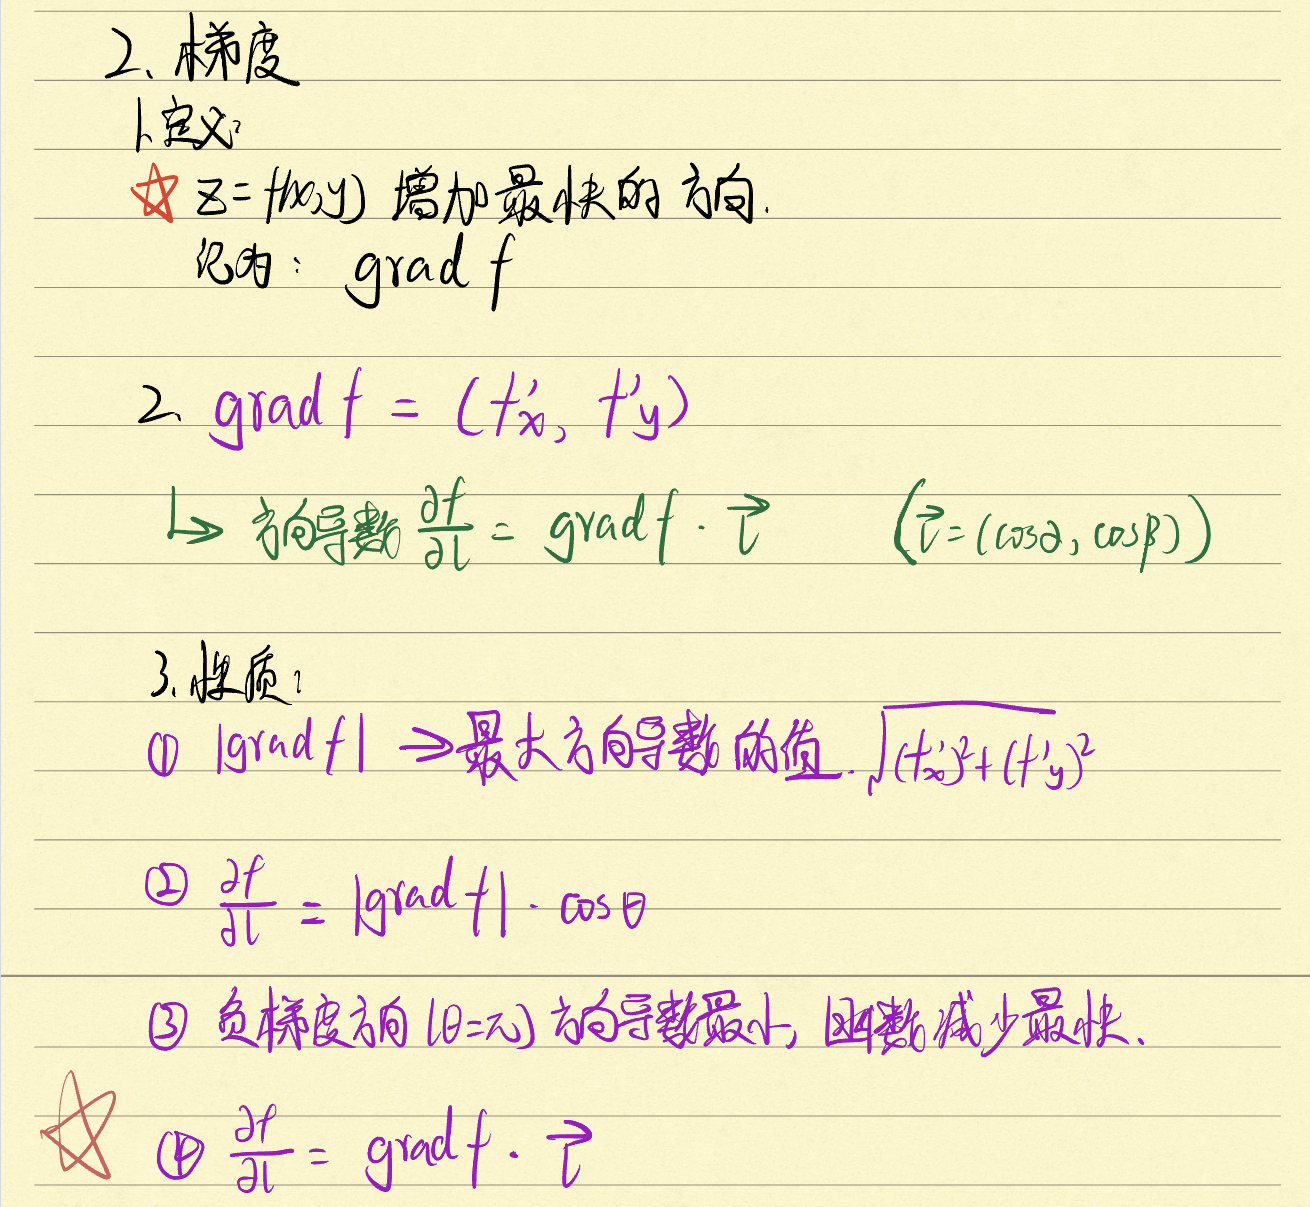 2、梯度
1、定义:
☆ z=f(x,y) 增加最快的方向.
记为: grad f
2、grad f = (f'x, f'y)
↳ 方向导数 ∂f/∂l = grad f · l⃗ (l⃗=(cosα, cosβ))
3、性质:
① |grad f| → 最大方向导数的值. √((f'x)²+(f'y)²)
② ∂f/∂l = |grad f| · cosθ
③ 负梯度方向(θ=π)方向导数最小, 函数减少最快.
☆ ④ ∂f/∂l = grad f · l⃗